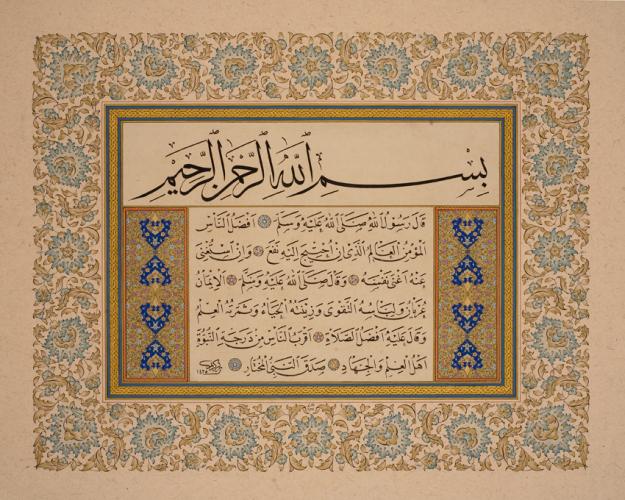 بِسْمِ اللهِ الرَّحْمنِ الرَّحِيْمِ
قَالَ رَسُوْلُ اللهِ صَلَّى اللهُ عَلَيْهِ وَسَلَّمَ اَفْضَلُ النَّاسِ
المُؤْمِنُ العَالِمُ الَّذِى اِنِ احْتِيْجَ اِلَيْهِ نَفَعَ وَاِنِ اسْتُغْنِىَ
عَنْهُ اَغْنَى نَفْسَهُ وَقَالَ صَلَّى اللهُ عَلَيْهِ وَسَلَّمَ اَلْاِيْمَانُ
عُرْيَانٌ وَلِبَاسُهُ التَّقْوَى وَزِيْنَتُهُ الحَيَاءُ وَثَمَرَتُهُ العِلْمُ
وَقَالَ عَلَيْهِ اَفْضَلُ الصَّلَاةِ اَقْرَبُ النَّاسِ مِنْ دَرَجَةِ النُّبُوَّةِ
اَهْلُ العِلْمِ وَالجِهَادِ صَدَقَ النَّبِىُّ المُخْتَارُ